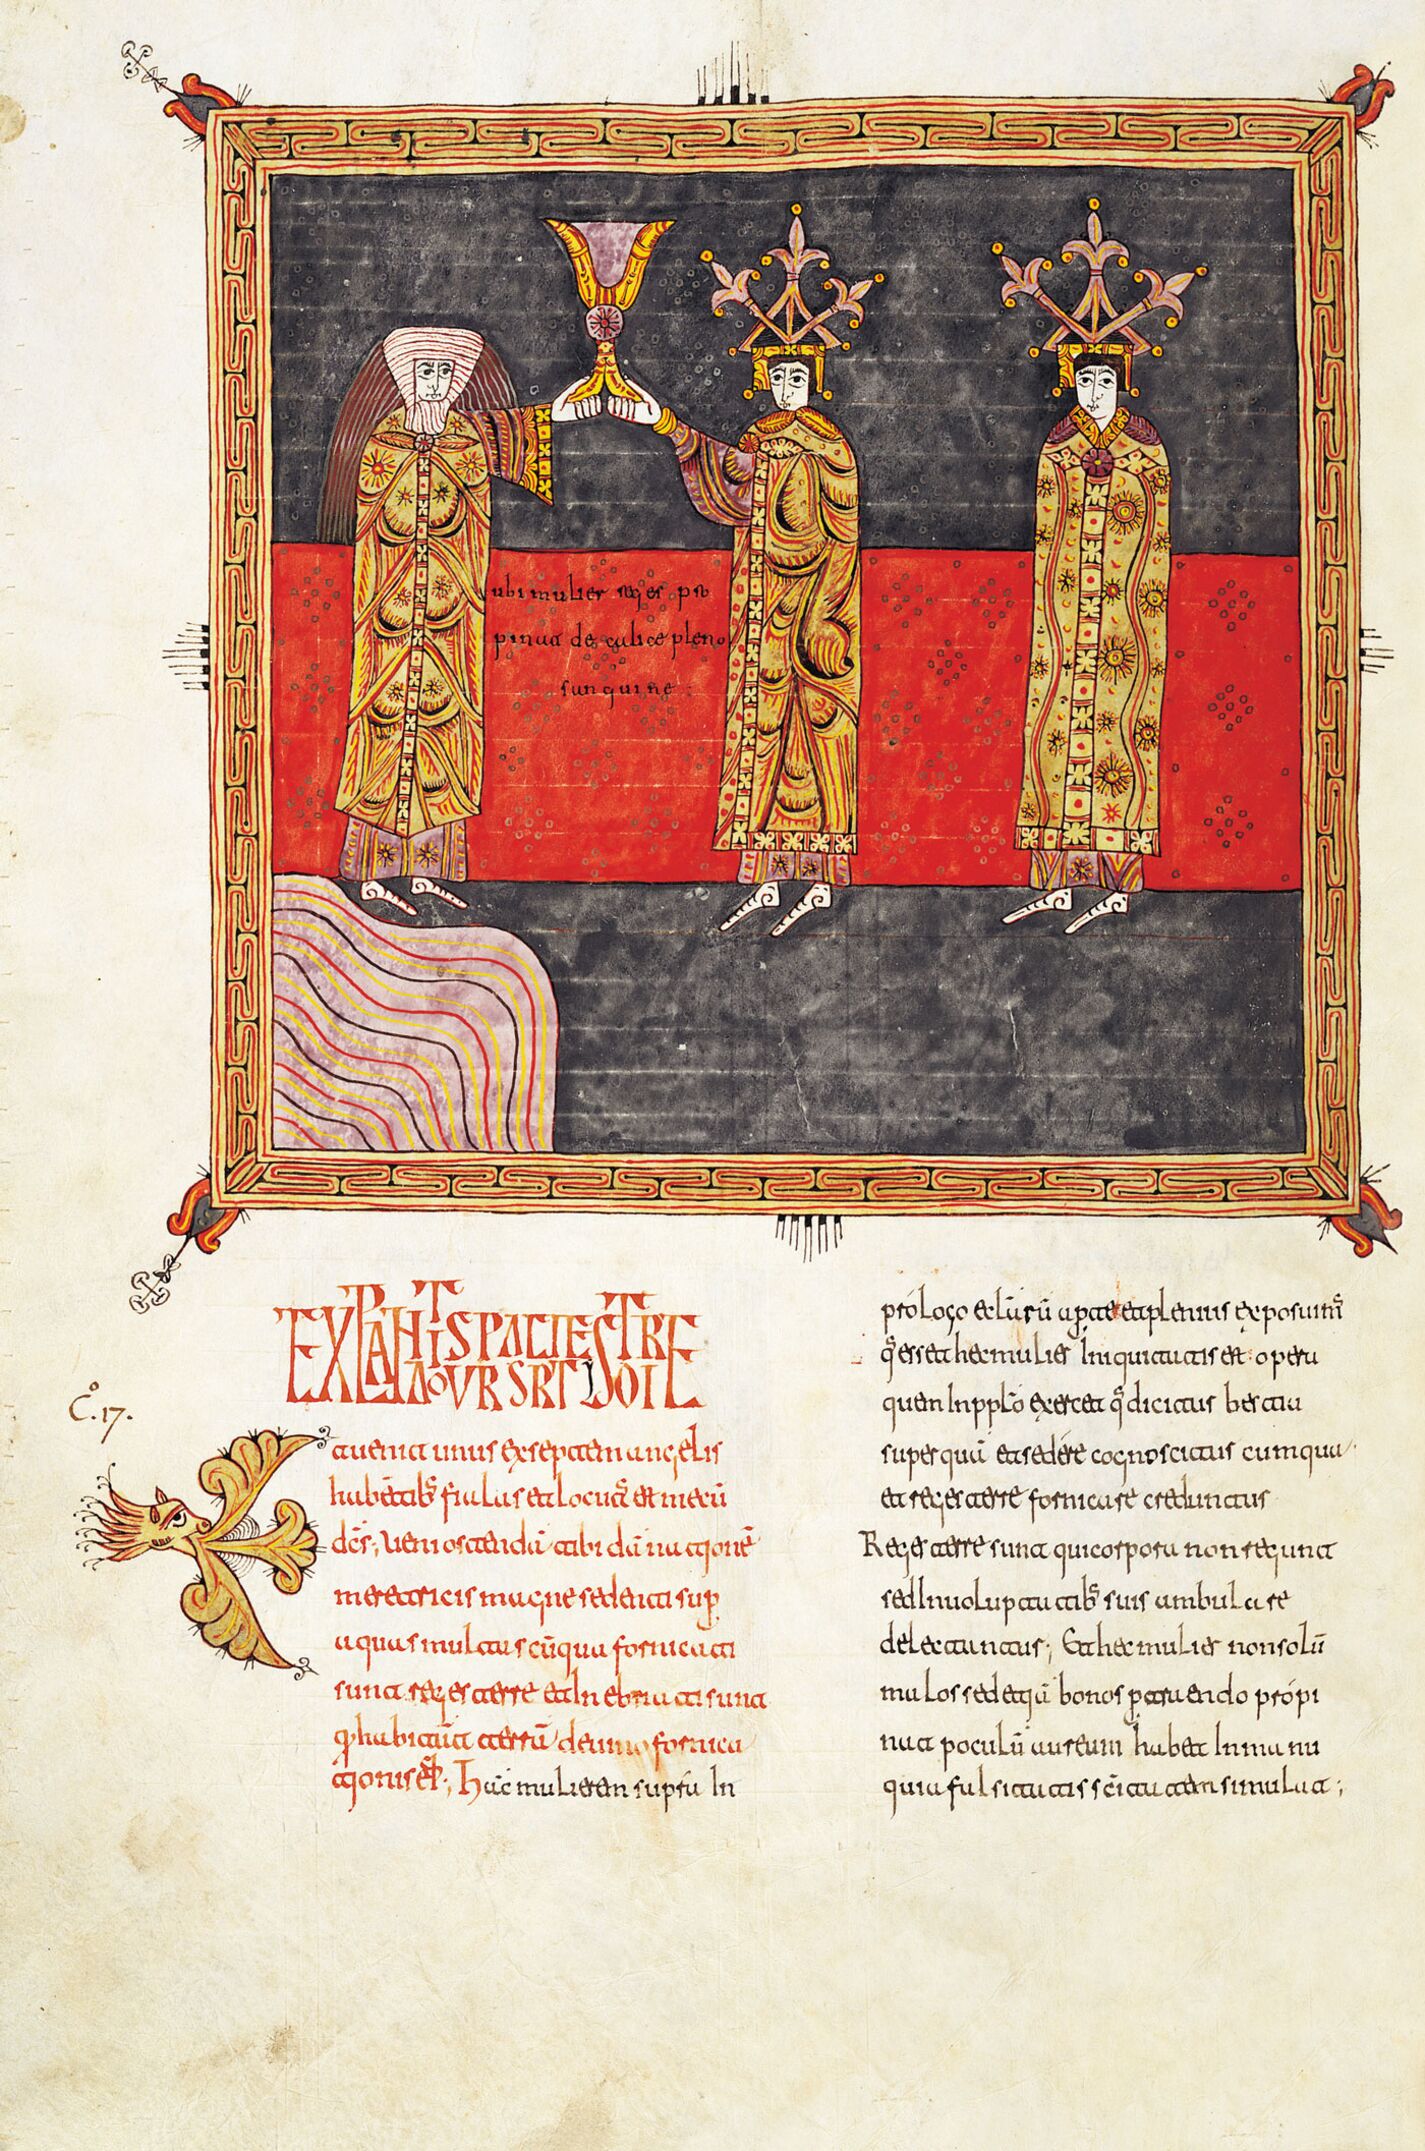 ubi mulier reges pro
pinat de calice pleno
sanguine:
EXPLANATIO SVPRASCRIPTE STORIE
Cº. 17.
Et uenit unus ex septem angelis
habētibꝰ fialas et locutꝰ est mecū
dcs; ueni ostendā tibi dānationē
meretricis magne sedenti sup
aquas multas cū qua fornicati
sunt reges terre et In ebriati sunt
q habitāt terrā de uino fornica
tionis eiꝰ; Hāc mulierem supra In
prologo aperte et plenius exposuimꝰ
qd esset hec mulier Iniquitatis est opera
quam In pplo exercet q dicitur bestia
super quā et sedere cognoscitur cum qua
et reges terre fornicare creduntur
Reges terre sunt qui corpora non regunt
sed In uoluptatibꝰ suis ambulare
delectantur; Et hec mulier non solū
malos sed etiā bonos propi
nat poculū aureum habet In manu
quia falsitatis scītatem simulat;